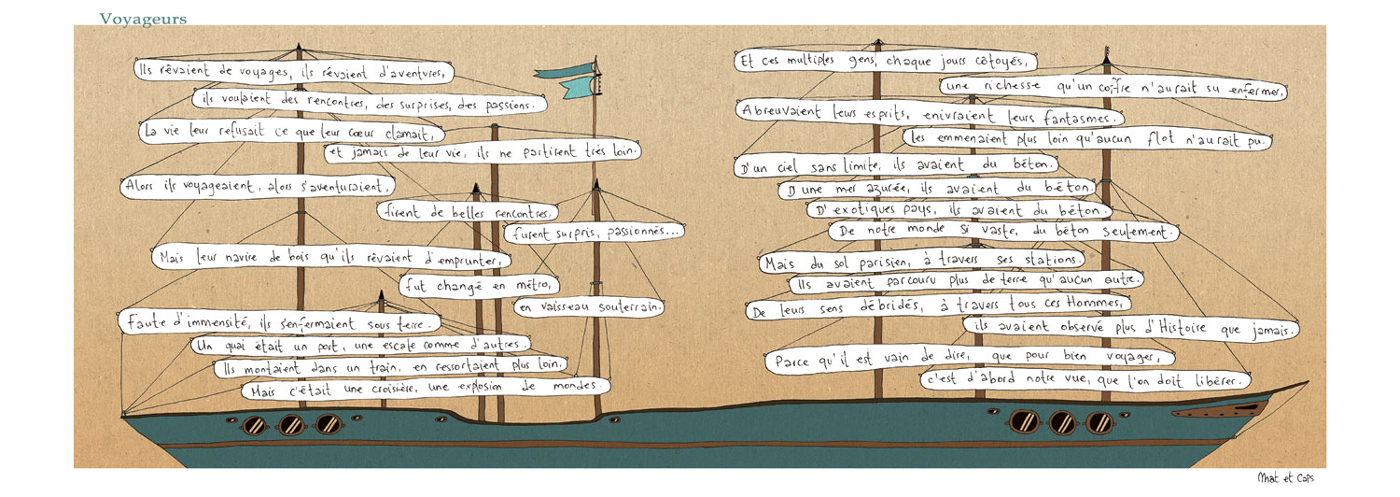 Voyageurs
Ils rêvaient de voyages, ils rêvaient d'aventures,
ils voulaient des rencontres, des surprises, des passions.
La vie leur refusait ce que leur cœur clamait,
et jamais de leur vie, ils ne partirent très loin.
Alors ils voyageaient, alors s'aventuraient,
firent de belles rencontres,
furent surpris, passionnés...
Mais leur navire de bois qu'ils rêvaient d'emprunter,
fut changé en métro,
en vaisseau souterrain.
Faute d'immensité, ils s'enfermaient sous terre.
Un quai était un port, une escale comme d'autres.
Ils montaient dans un train, en ressortaient plus loin,
Mais c'était une croisière, une explosion de mondes.
Et ces multiples gens, chaque jours côtoyés,
une richesse qu'un coffre n'aurait su enfermer,
Abreuvaient leurs esprits, enivraient leurs fantasmes.
les emmenaient plus loin qu'aucun flot n'aurait pu.
D'un ciel sans limite, ils avaient du béton.
D'une mer azurée, ils avaient du béton.
D'exotiques pays, ils avaient du béton.
De notre monde si vaste, du béton seulement.
Mais du sol parisien, à travers ses stations.
Ils avaient parcouru plus de terre qu'aucun autre.
De leurs sens débridés, à travers tous ces Hommes,
ils avaient observé plus d'Histoire que jamais.
Parce qu'il est vain de dire, que pour bien voyager,
c'est d'abord notre vue, que l'on doit libérer.
Mhat et Caps